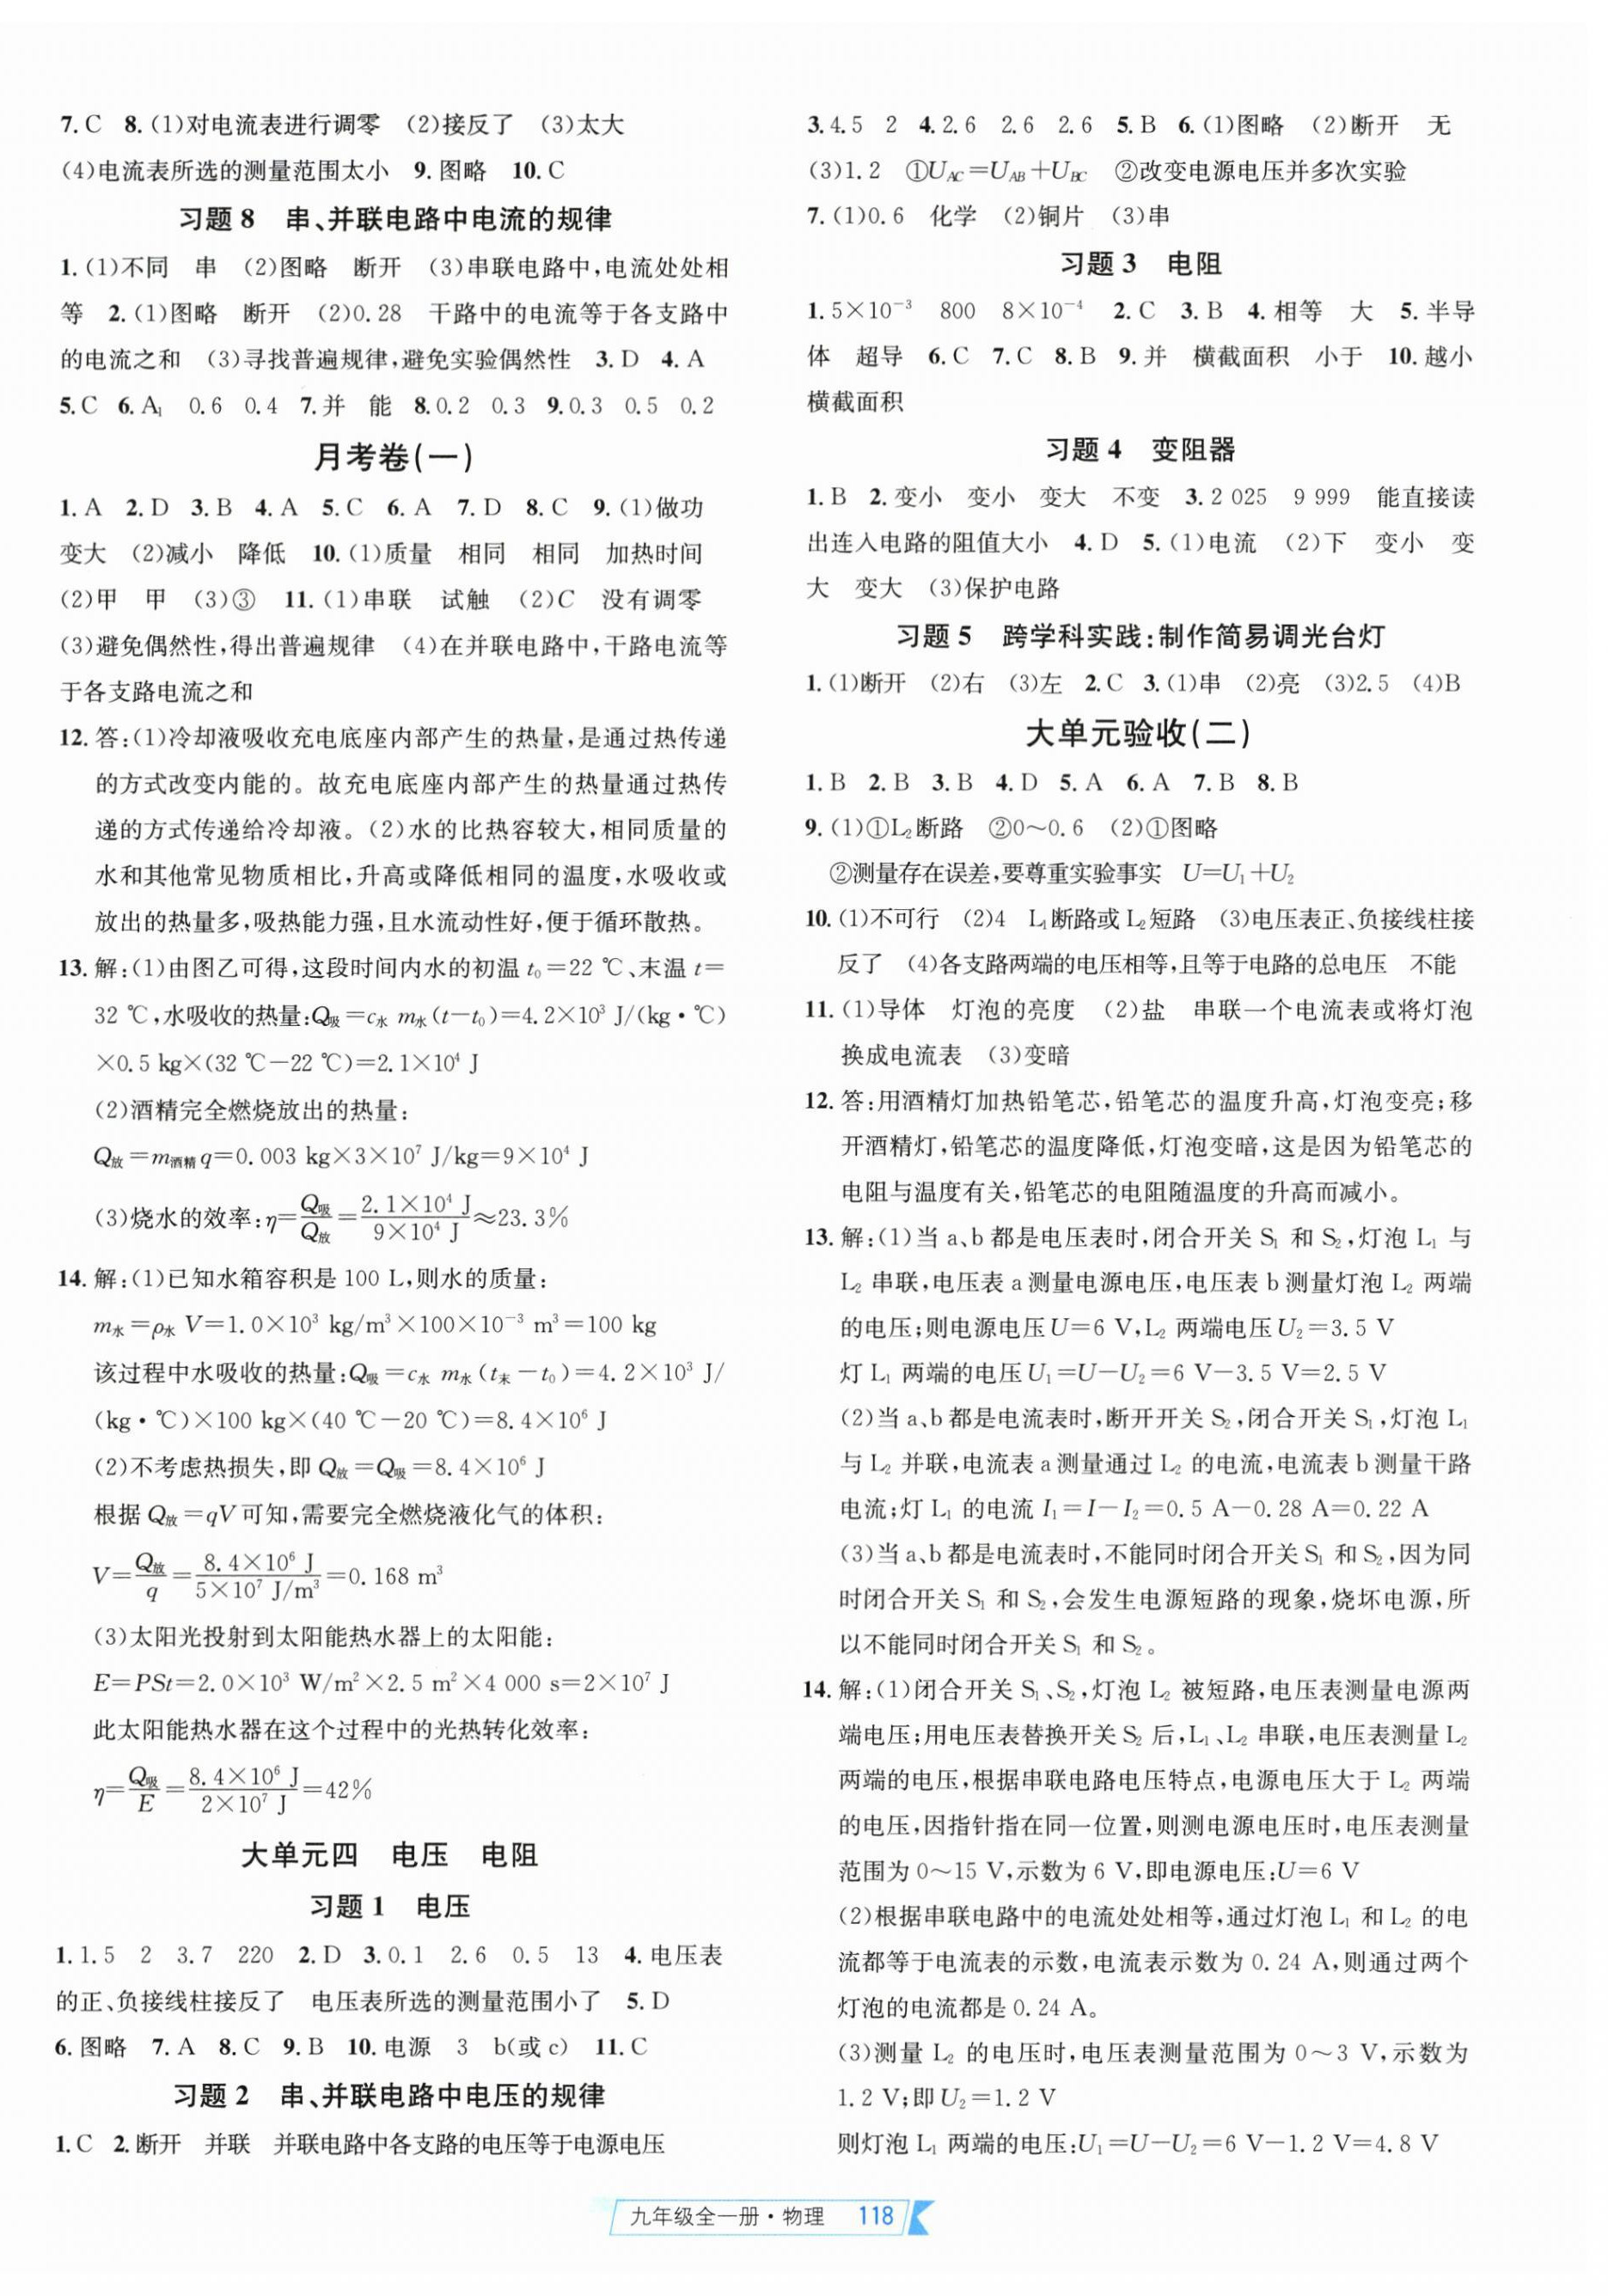 7. C 8. (1)对电流表进行调零 (2)接反了 (3)太大
(4)电流表所选的测量范围太小 9. 图略 10. C
习题 8 串、并联电路中电流的规律
1. (1)不同 串 (2)图略 断开 (3)串联电路中,电流处处相
等 2. (1)图略 断开 (2)0.28 干路中的电流等于各支路中
的电流之和 (3)寻找普遍规律,避免实验偶然性 3. D 4. A
5. C 6. A₁ 0.6 0.4 7. 并 能 8. 0.2 0.3 9. 0.3 0.5 0.2
月考卷(一)
1. A 2. D 3. B 4. A 5. C 6. A 7. D 8. C 9. (1)做功
变大 (2)减小 降低 10. (1)质量 相同 相同 加热时间
(2)甲 甲 (3)③ 11. (1)串联 试触 (2)C 没有调零
(3)避免偶然性,得出普遍规律 (4)在并联电路中,干路电流等
于各支路电流之和
12. 答:(1)冷却液吸收充电底座内部产生的热量,是通过热传递
的方式改变内能的。故充电底座内部产生的热量通过热传
递的方式传递给冷却液。(2)水的比热容较大,相同质量的
水和其他常见物质相比,升高或降低相同的温度,水吸收或
放出的热量多,吸热能力强,且水流动性好,便于循环散热。
13. 解:(1)由图乙可得,这段时间内水的初温 t₀=22 ℃、末温 t=
32 ℃,水吸收的热量:Q吸=c水 m水(t-t₀)=4.2×10³ J/(kg·℃)
×0.5 kg×(32 ℃-22 ℃)=2.1×10⁴ J
(2)酒精完全燃烧放出的热量:
Q放=m酒精q=0.003 kg×3×10⁷ J/kg=9×10⁴ J
(3)烧水的效率:η=Q吸/Q放=2.1×10⁴ J/9×10⁴ J≈23.3%
14. 解:(1)已知水箱容积是 100 L,则水的质量:
m水=ρ水 V=1.0×10³ kg/m³×100×10⁻³ m³=100 kg
该过程中水吸收的热量:Q吸=c水 m水(t末-t₀)=4.2×10³ J/
(kg·℃)×100 kg×(40 ℃-20 ℃)=8.4×10⁶ J
(2)不考虑热损失,即 Q放=Q吸=8.4×10⁶ J
根据 Q放=qV 可知,需要完全燃烧液化气的体积:
V=Q放/q=8.4×10⁶ J/5×10⁷ J/m³=0.168 m³
(3)太阳光投射到太阳能热水器上的太阳能:
E=PSt=2.0×10³ W/m²×2.5 m²×4 000 s=2×10⁷ J
此太阳能热水器在这个过程中的光热转化效率:
η=Q吸/E=8.4×10⁶ J/2×10⁷ J=42%
大单元四 电压 电阻
习题 1 电压
1. 1.5 2 3.7 220 2. D 3. 0.1 2.6 0.5 13 4. 电压表
的正、负接线柱接反了 电压表所选的测量范围小了 5. D
6. 图略 7. A 8. C 9. B 10. 电源 3 b(或 c) 11. C
习题 2 串、并联电路中电压的规律
1. C 2. 断开 并联 并联电路中各支路的电压等于电源电压
3. 4.5 2 4. 2.6 2.6 2.6 5. B 6. (1)图略 (2)断开 无
(3)1.2 ①U_AC=U_AB+U_BC ②改变电源电压并多次实验
7. (1)0.6 化学 (2)铜片 (3)串
习题 3 电阻
1. 5×10⁻³ 800 8×10⁻⁴ 2. C 3. B 4. 相等 大 5. 半导
体 超导 6. C 7. C 8. B 9. 并 横截面积 小于 10. 越小
横截面积
习题 4 变阻器
1. B 2. 变小 变小 变大 不变 3. 2 025 9 999 能直接读
出连入电路的阻值大小 4. D 5. (1)电流 (2)下 变小 变
大 变大 (3)保护电路
习题 5 跨学科实践:制作简易调光台灯
1. (1)断开 (2)右 (3)左 2. C 3. (1)串 (2)亮 (3)2.5 (4)B
大单元验收(二)
1. B 2. B 3. B 4. D 5. A 6. A 7. B 8. B
9. (1)①L₂断路 ②0~0.6 (2)①图略
②测量存在误差,要尊重实验事实 U=U₁+U₂
10. (1)不可行 (2)4 L₁断路或 L₂短路 (3)电压表正、负接线柱接
反了 (4)各支路两端的电压相等,且等于电路的总电压 不能
11. (1)导体 灯泡的亮度 (2)盐 串联一个电流表或将灯泡
换成电流表 (3)变暗
12. 答:用酒精灯加热铅笔芯,铅笔芯的温度升高,灯泡变亮;移
开酒精灯,铅笔芯的温度降低,灯泡变暗,这是因为铅笔芯的
电阻与温度有关,铅笔芯的电阻随温度的升高而减小。
13. 解:(1)当 a、b 都是电压表时,闭合开关 S₁ 和 S₂,灯泡 L₁ 与
L₂ 串联,电压表 a 测量电源电压,电压表 b 测量灯泡 L₂ 两端
的电压;则电源电压 U=6 V,L₂ 两端电压 U₂=3.5 V
灯 L₁ 两端的电压 U₁=U-U₂=6 V-3.5 V=2.5 V
(2)当 a、b 都是电流表时,断开开关 S₂,闭合开关 S₁,灯泡 L₁
与 L₂ 并联,电流表 a 测量通过 L₂ 的电流,电流表 b 测量干路
电流;灯 L₁ 的电流 I₁=I-I₂=0.5 A-0.28 A=0.22 A
(3)当 a、b 都是电流表时,不能同时闭合开关 S₁ 和 S₂,因为同
时闭合开关 S₁ 和 S₂,会发生电源短路的现象,烧坏电源,所
以不能同时闭合开关 S₁ 和 S₂。
14. 解:(1)闭合开关 S₁、S₂,灯泡 L₂ 被短路,电压表测量电源两
端电压;用电压表替换开关 S₂ 后,L₁、L₂ 串联,电压表测量 L₂
两端的电压,根据串联电路电压特点,电源电压大于 L₂ 两端
的电压,因指针指在同一位置,则测电源电压时,电压表测量
范围为 0~15 V,示数为 6 V,即电源电压:U=6 V
(2)根据串联电路中的电流处处相等,通过灯泡 L₁ 和 L₂ 的电
流都等于电流表的示数,电流表示数为 0.24 A,则通过两个
灯泡的电流都是 0.24 A。
(3)测量 L₂ 的电压时,电压表测量范围为 0~3 V,示数为
1.2 V;即 U₂=1.2 V
则灯泡 L₁ 两端的电压:U₁=U-U₂=6 V-1.2 V=4.8 V
九年级全一册·物理 118